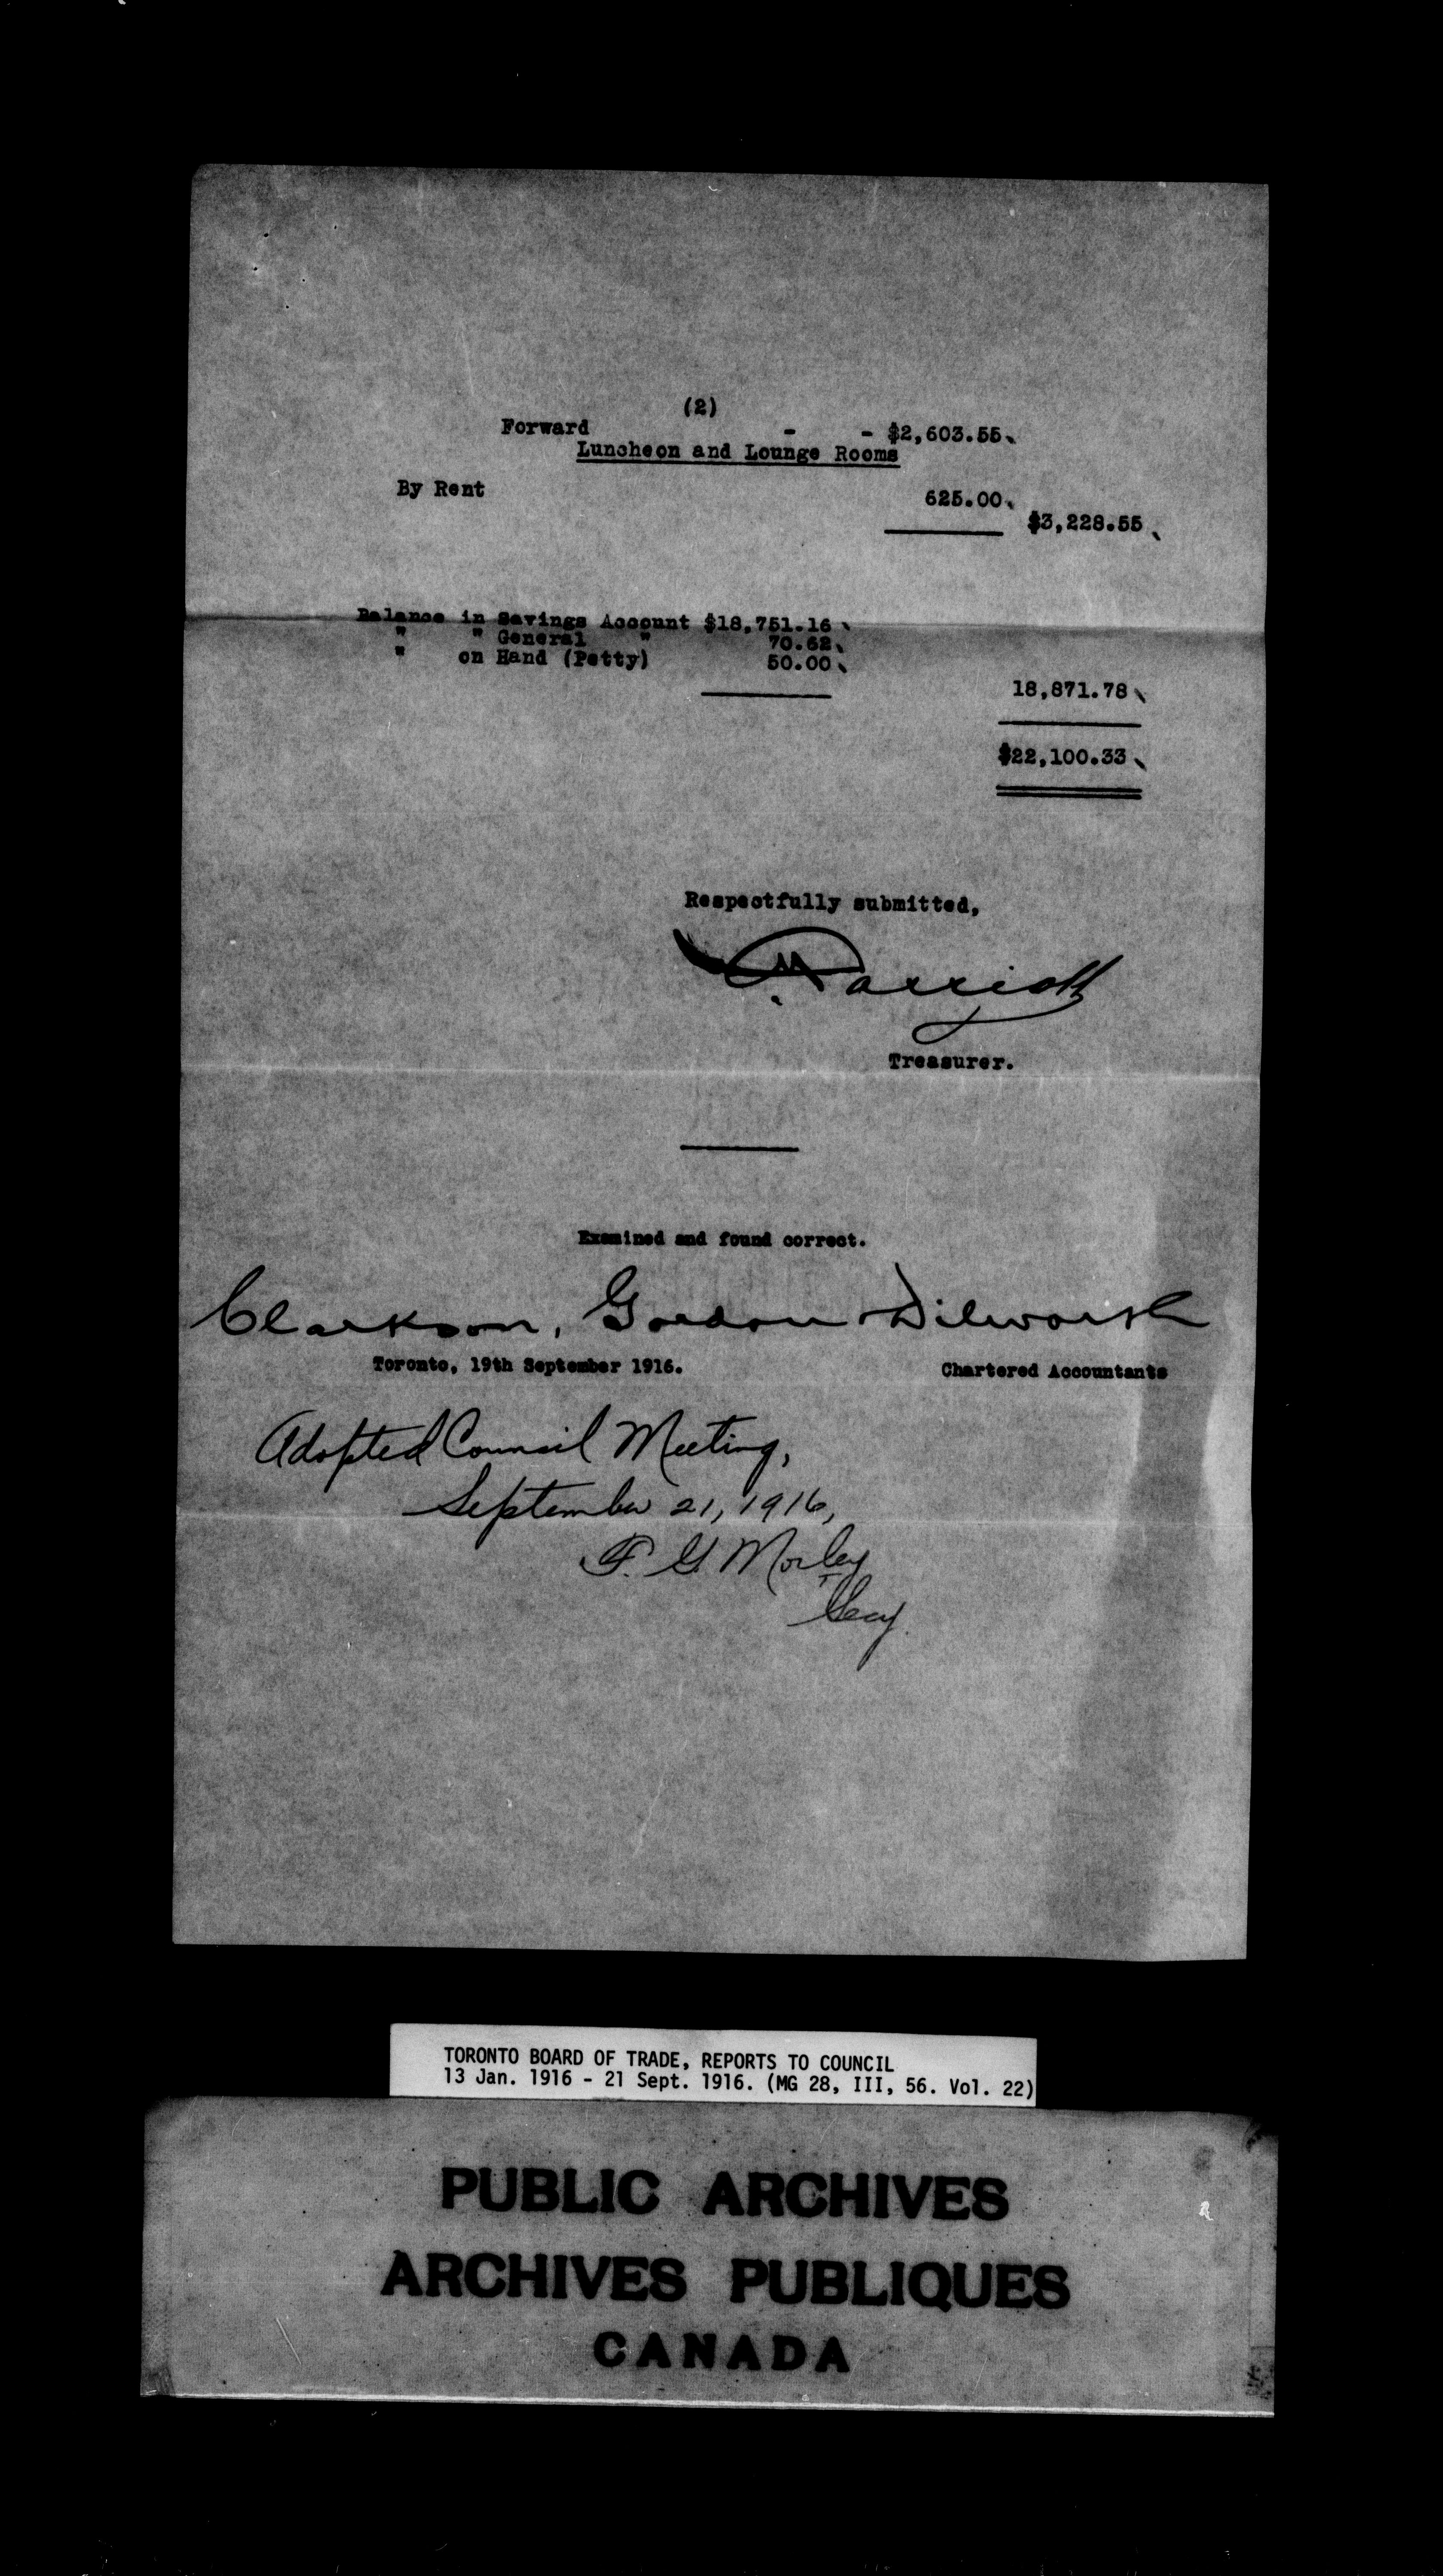 (2)
Forward - - $2,603.55
Luncheon and Lounge Rooms
By Rent 625.00
$3,228.55
Balance in Savings Account $18,751.16
" " General " 70.62
" on Hand (Petty) 50.00
18,871.78
$22,100.33
Respectfully submitted,
Treasurer.
Examined and found correct.
Clarkson, Gordon Dilworth
Toronto, 19th September 1916. Chartered Accountants
Adopted Council Meeting,
September 21, 1916,
F. G. Morley
Secy.
TORONTO BOARD OF TRADE, REPORTS TO COUNCIL
13 Jan. 1916 - 21 Sept. 1916. (MG 28, III, 56. Vol. 22)
PUBLIC ARCHIVES
ARCHIVES PUBLIQUES
CANADA